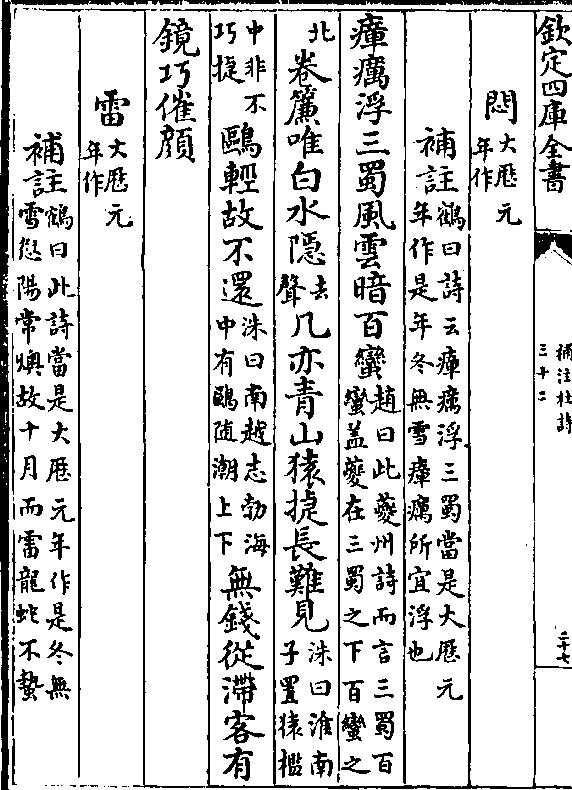 欽定四庫全書
補注杜詩
三十二
二十七
悶大厯元年作
補註鶴曰詩云瘴癘浮三蜀當是大厯元年作是年冬無雪瘴癘所宜浮也
瘴癘浮三蜀風雲暗百蠻趙曰此夔州詩而言三蜀百蠻盖夔在三蜀之下百蠻之
北卷簾唯白水隱去聲几亦青山猿捷長難見洙曰淮南子置猿檻
中非不巧捷鷗輕故不還洙曰南越志勃海中有鷗随潮上下無錢從滯客有
鏡巧催顔
雷大厯元年作
補註鶴曰此詩當是大厯元年作是冬無雪愆陽常燠故十月而雷龍蛇不蟄